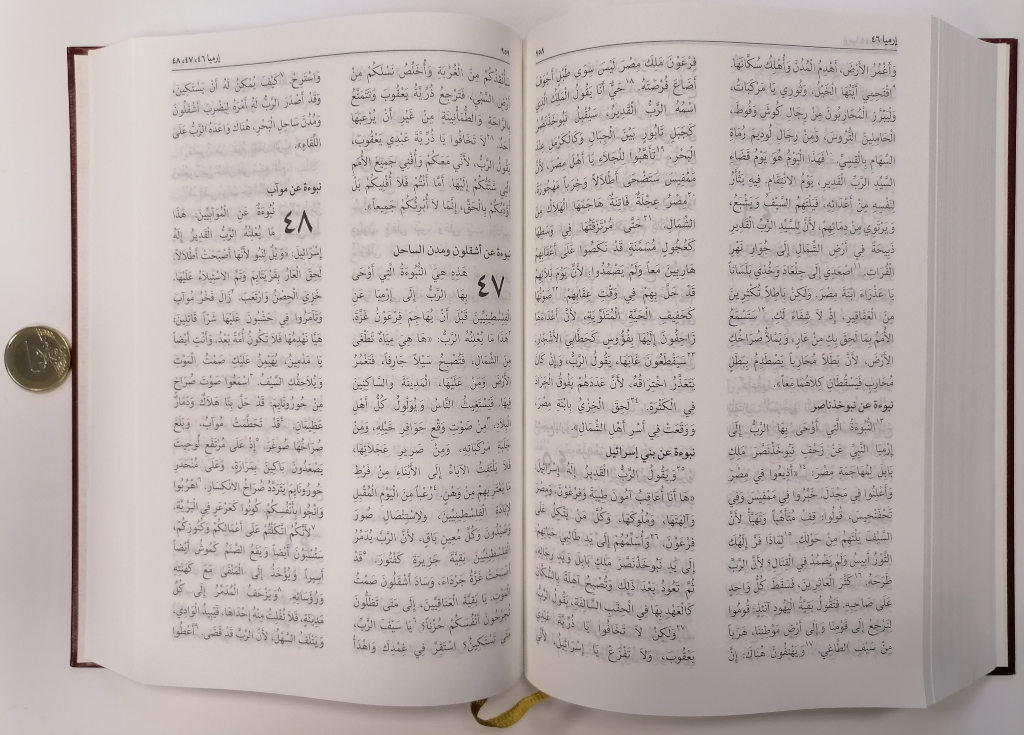 إرميا ٤٦
٩٥٨
وَأَغْمُرُ الأَرْضَ، أَهْدِمُ الْمُدُنَ وَأُهْلِكُ سُكَّانَهَا.
اقْتَحِمِي أَيَّتُهَا الْخَيْلُ، وَثُورِي يَا مَرْكَبَاتُ،
وَلْيَبْرُزِ الْمُحَارِبُونَ مِنْ رِجَالِ كُوشَ وَفُوطَ،
الْحَامِلِينَ التُّرُوسَ، وَمِنْ رِجَالِ لُودِيمَ رُمَاةِ
السِّهَامِ بِالْقِسِيِّ. ١٠فَهَذَا الْيَوْمُ هُوَ يَوْمُ قَضَاءِ
السَّيِّدِ الرَّبِّ الْقَدِيرِ، يَوْمُ الانْتِقَامِ. فِيهِ يَثْأَرُ
لِنَفْسِهِ مِنْ أَعْدَائِهِ، فَيَلْتَهِمُ السَّيْفُ وَيَشْبَعُ،
وَيَرْتَوِي مِنْ دِمَائِهِمْ، لأَنَّ لِلسَّيِّدِ الرَّبِّ الْقَدِيرِ
ذَبِيحَةً فِي أَرْضِ الشِّمَالِ إِلَى جُوَارِ نَهْرِ
الْفُرَاتِ. ١١اصْعَدِي إِلَى جِلْعَادَ وَخُذِي بَلَسَاناً
يَا عَذْرَاءَ ابْنَةَ مِصْرَ. وَلَكِنْ بَاطِلاً تُكْثِرِينَ
مِنَ الْعَقَاقِيرِ، إِذْ لاَ شِفَاءَ لَكِ. ١٢سَتَسْمَعُ
الأُمَمُ بِمَا لَحِقَ بِكِ مِنْ عَارٍ، وَيَمْلأُ صُرَاخُكِ
الأَرْضَ، لأَنَّ بَطَلاً مُحَارِباً يَصْطَدِمُ بِبَطَلٍ
مُحَارِبٍ فَيَسْقُطَانِ كِلاَهُمَا مَعاً».
نبوءة عن نبوخذناصر
١٣النُّبُوءَةُ الَّتِي أَوْحَى بِهَا الرَّبُّ إِلَى
إِرْمِيَا النَّبِيِّ عَنْ زَحْفِ نَبُوخَذْنَصَّرَ مَلِكِ
بَابِلَ لِمُهَاجَمَةِ مِصْرَ: ١٤«أَذِيعُوا فِي مِصْرَ
وَأَعْلِنُوا فِي مَجْدَلَ. خَبِّرُوا فِي مَمْفِيسَ وَفِي
تَحْفَنْحِيسَ، قُولُوا: قِفْ مُتَأَهِّباً وَتَهَيَّأْ لأَنَّ
السَّيْفَ يَلْتَهِمُ مَنْ حَوْلَكَ. ١٥لِمَاذَا فَرَّ إِلَهُكَ
الثَّوْرُ أَبِيسُ وَلَمْ يَصْمُدْ فِي الْقِتَالِ؟ لأَنَّ الرَّبَّ
طَرَحَهُ. ١٦كَثَّرَ الْعَاثِرِينَ، فَسَقَطَ كُلُّ وَاحِدٍ
عَلَى صَاحِبِهِ. فَتَقُولُ بَقِيَّةُ الْيَهُودِ آنَئِذٍ: قُومُوا
لِنَرْجِعَ إِلَى قَوْمِنَا وَإِلَى أَرْضِ مَوْطِنِنَا، هَرَباً
مِنْ سَيْفِ الطَّاغِي. ١٧وَيَهْتِفُونَ هُنَاكَ: إِنَّ
فِرْعَوْنَ مَلِكَ مِصْرَ لَيْسَ سِوَى طَبْلٍ أَجْوَفَ
أَضَاعَ فُرْصَتَهُ. ١٨حَيٌّ أَنَا يَقُولُ الْمَلِكُ الَّذِي
اسْمُهُ الرَّبُّ الْقَدِيرُ، سَيُقْبِلُ نَبُوخَذْنَصَّرُ
كَجَبَلِ تَابُورَ بَيْنَ الْجِبَالِ وَكَالْكَرْمَلِ عِنْدَ
الْبَحْرِ. ١٩تَأَهَّبُوا لِلْجَلاَءِ يَا أَهْلَ مِصْرَ، لأَنَّ
مَمْفِيسَ سَتُضْحَى أَطْلاَلاً وَخَرَباً مَهْجُورَةً.
٢٠مِصْرُ عِجْلَةٌ فَاتِنَةٌ هَاجَمَهَا الْهَلاَكُ مِنَ
الشِّمَالِ. ٢١حَتَّى مُرْتَزِقَتُهَا فِي وَسَطِهَا
كَعُجُولٍ مُسَمَّنَةٍ قَدْ نَكَصُوا عَلَى أَعْقَابِهِمْ
هَارِبِينَ مَعاً وَلَمْ يَصْمُدُوا، لأَنَّ يَوْمَ بَلِيَّتِهِمْ
قَدْ حَلَّ بِهِمْ فِي وَقْتِ عِقَابِهِمْ. ٢٢صَوْتُهَا
كَحَفِيفِ الْحَيَّةِ الْمُتَلَوِّيَةِ، لأَنَّ أَعْدَاءَهَا
زَاحِفُونَ إِلَيْهَا بِفُؤُوسٍ كَحَطَّابِي الأَشْجَارِ.
٢٣سَيَقْطَعُونَ غَابَهَا، يَقُولُ الرَّبُّ، وَإِنْ كَانَ
يَتَعَذَّرُ اخْتِرَاقُهُ، لأَنَّ عَدَدَهُمْ يَفُوقُ الْجَرَادَ
فِي الْكَثْرَةِ. ٢٤لَحِقَ الْخِزْيُ بِابْنَةِ مِصْرَ،
وَوَقَعَتْ فِي أَسْرِ أَهْلِ الشِّمَالِ».
نبوءة عن بني إسرائيل
٢٥وَيَقُولُ الرَّبُّ الْقَدِيرُ إِلَهُ إِسْرَائِيلَ:
«هَا أَنَا أُعَاقِبُ آمُونَ طِيبَةَ وَفِرْعَوْنَ، وَمِصْرَ
وَآلِهَتَهَا، وَمُلُوكَهَا، وَكُلَّ مَنْ يَتَّكِلُ عَلَى
فِرْعَوْنَ، ٢٦وَأُسَلِّمُهُمْ إِلَى يَدِ طَالِبِي حَيَاتِهِمْ
إِلَى يَدِ نَبُوخَذْنَصَّرَ مَلِكِ بَابِلَ وَيَدِ رِجَالِهِ،
ثُمَّ تَعُودُ بَعْدَ ذَلِكَ وَتُصْبِحُ آهِلَةً بِالسُّكَّانِ
كَالْعَهْدِ بِهَا فِي الْحِقَبِ السَّالِفَةِ، يَقُولُ الرَّبُّ.
٢٧وَلَكِنْ لاَ تَخَافُوا يَا ذُرِّيَّةَ عَبْدِي
يَعْقُوبَ، وَلاَ تَفْزَعْ يَا إِسْرَائِيلُ، لأَنِّي
٩٥٩
إرميا ٤٦، ٤٧، ٤٨
سَأُنْقِذُكُمْ مِنَ الْغُرْبَةِ وَأُخَلِّصُ نَسْلَكُمْ مِنْ
أَرْضِ السَّبْيِ، فَتَرْجِعُ ذُرِّيَّةُ يَعْقُوبَ وَتَتَمَتَّعُ
بِالرَّاحَةِ وَالطُّمَأْنِينَةِ مِنْ غَيْرِ أَنْ يُزْعِجَهَا
أَحَدٌ. ٢٨لاَ تَخَافُوا يَا ذُرِّيَّةَ عَبْدِي يَعْقُوبَ،
يَقُولُ الرَّبُّ، لأَنِّي مَعَكُمْ وَأُفْنِي جَمِيعَ الأُمَمِ
الَّتِي شَتَّتُّكُمْ إِلَيْهَا. أَمَّا أَنْتُمْ فَلاَ أُفْنِيكُمْ بَلْ
أُؤَدِّبُكُمْ بِالْحَقِّ، إِنَّمَا لاَ أُبَرِّئُكُمْ جَمِيعاً».
نبوءة عن أشقلون ومدن الساحل
٤٧
هَذِهِ هِيَ النُّبُوءَةُ الَّتِي أَوْحَى
بِهَا الرَّبُّ إِلَى إِرْمِيَا عَنِ
الْفِلِسْطِينِيِّينَ قَبْلَ أَنْ يُهَاجِمَ فِرْعَوْنُ غَزَّةَ:
٢هَذَا مَا يُعْلِنُهُ الرَّبُّ: «هَا هِيَ مِيَاهٌ تَطْغَى
مِنَ الشِّمَالِ، فَتُصْبِحُ سَيْلاً جَارِفاً، فَتَغْمُرُ
الأَرْضَ وَمَنْ عَلَيْهَا، الْمَدِينَةَ وَالسَّاكِنِينَ
فِيهَا، فَيَسْتَغِيثُ النَّاسُ وَيُوَلْوِلُ كُلُّ أَهْلِ
الْبِلاَدِ، ٣مِنْ صَوْتِ وَقْعِ حَوَافِرِ خَيْلِهِ، وَمِنْ
جَلَبَةِ مَرْكَبَاتِهِ، وَمِنْ صَرِيرِ عَجَلاَتِهَا،
فَلاَ يَلْتَفِتُ الآبَاءُ إِلَى الأَبْنَاءِ مِنْ فَرْطِ
مَا يَعْتَرِيهِمْ مِنْ وَهَنٍ، ٤رُعْباً مِنَ الْيَوْمِ الْمُقْبِلِ
لإِبَادَةِ الْفِلِسْطِينِيِّينَ، وَلاِسْتِئْصَالِ صُورَ
وَصَيْدُونَ وَكُلِّ مُعِينٍ بَاقٍ، لأَنَّ الرَّبَّ يُدَمِّرُ
الْفِلِسْطِينِيِّينَ بَقِيَّةَ جَزِيرَةِ كَفْتُورَ. ٥قَدْ
أَصْبَحَتْ غَزَّةُ جَرْدَاءَ، وَسَادَ أَشْقَلُونَ صَمْتُ
الْمَوْتِ. يَا بَقِيَّةَ الْعَنَاقِيِّينَ، إِلَى مَتَى تَظَلُّونَ
تُجَرِّحُونَ أَنْفُسَكُمْ حُزْناً؟ ٦يَا سَيْفَ الرَّبِّ،
مَتَى تَسْتَكِينُ؟ اسْتَقِرَّ فِي غِمْدِكَ وَاهْدَأْ
وَاسْتَرِحْ. ٧كَيْفَ يُمْكِنُ لَهُ أَنْ يَسْتَكِينَ،
وَقَدْ أَصْدَرَ الرَّبُّ لَهُ أَمْرَهُ لِيَضْرِبَ أَشْقَلُونَ
وَمُدُنَ سَاحِلِ الْبَحْرِ، هُنَاكَ وَاعَدَهُ الرَّبُّ عَلَى
اللِّقَاءِ».
نبوءة عن موآب
٤٨
نُبُوءَةٌ عَنِ الْمُوآبِيِّينَ. هَذَا
مَا يُعْلِنُهُ الرَّبُّ الْقَدِيرُ إِلَهُ
إِسْرَائِيلَ: «وَيْلٌ لِنَبُو لأَنَّهَا أَصْبَحَتْ أَطْلاَلاً.
لَحِقَ الْعَارُ بِقَرْيَتَايِمَ وَتَمَّ الاسْتِيلاَءُ عَلَيْهَا.
خَزِيَ الْحِصْنُ وَارْتَعَبَ. ٢زَالَ فَخْرُ مُوآبَ
وَتَآمَرُوا فِي حَشْبُونَ عَلَيْهَا شَرّاً قَائِلِينَ:
هَيَّا نَهْدِمُهَا فَلاَ تَكُونُ أُمَّةً بَعْدُ. وَأَنْتِ أَيْضاً
يَا مَدْمِينُ، يُهَيْمِنُ عَلَيْكِ صَمْتُ الْمَوْتِ
وَيُلاَحِقُكِ السَّيْفُ. ٣اسْمَعُوا صَوْتَ صُرَاخٍ
مِنْ حُورُونَايِمَ. قَدْ حَلَّ بِنَا هَلاَكٌ وَدَمَارٌ
عَظِيمَانِ. ٤قَدْ تَحَطَّمَتْ مُوآبُ، وَبَلَغَ
صُرَاخُهَا صُوغَرَ. ٥إِذْ عَلَى مُرْتَفَعِ لُوحِيتَ
يَصْعَدُونَ بَاكِينَ بِمَرَارَةٍ، وَعَلَى مُنْحَدَرِ
حُورُونَايِمَ يَتَرَدَّدُ صُرَاخُ الانْكِسَارِ. ٦اهْرُبُوا
وَانْجُوا بِأَنْفُسِكُمْ. كُونُوا كَعَرْعَرٍ فِي الْبَرِّيَّةِ.
٧لأَنَّكُمُ اتَّكَلْتُمْ عَلَى أَعْمَالِكُمْ وَكُنُوزِكُمْ،
سَتُسْبَوْنَ أَيْضاً وَيَقَعُ الصَّنَمُ كَمُوشُ أَيْضاً
أَسِيراً وَيُؤْخَذُ إِلَى الْمَنْفَى مَعَ كَهَنَتِهِ
وَرُؤَسَائِهِ. ٨وَيَزْحَفُ الْمُدَمِّرُ إِلَى كُلِّ
مَدِينَةٍ، فَلاَ تُفْلِتُ مِنْهُ إِحْدَاهَا، فَيَبِيدُ الْوَادِي،
وَيَتْلَفُ السَّهْلُ، لأَنَّ الرَّبَّ قَدْ قَضَى. ٩أَعْطُوا